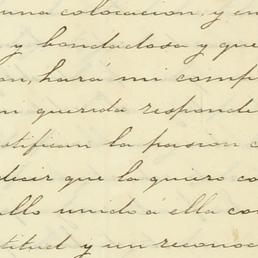 una colocacion. y en
y bondadosa y que
on, hará mi comp
querida responde
stifican la pasion
decir que la quiero co
ello unido á ella con
titud y un reconoc